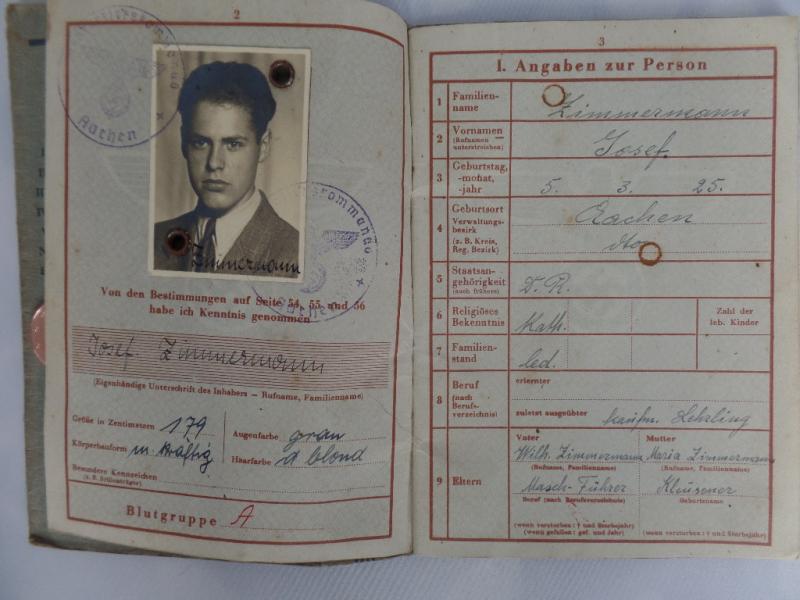 2
Aachen
Zimmermann
Aachen
Von den Bestimmungen auf Seite 54, 55 und 56
habe ich Kenntnis genommen
Josef Zimmermann
(Eigenhändige Unterschrift des Inhabers — Rufname, Familienname)
Größe in Zentimetern 179
Augenfarbe grau
Körperbauform m kräftig
Haarfarbe d blond
Besondere Kennzeichen
(z. B. Brillenträger)
Blutgruppe A
3
I. Angaben zur Person
1 Familien-
name Zimmermann
2 Vornamen
(Rufnamen
unterstreichen) Josef.
3 Geburtstag,
-monat,
-jahr 5. 3. 25.
4 Geburtsort
Verwaltungs-
bezirk
(z. B. Kreis,
Reg. Bezirk) Aachen
dto
5 Staatsan-
gehörigkeit
(auch frühere) D. R.
6 Religiöses
Bekenntnis Kath.
Zahl der
leb. Kinder
7 Familien-
stand led.
8 Beruf
(nach
Berufs-
verzeichnis)
erlernter
zuletzt ausgeübter kaufm. Lehrling
9 Eltern
Vater Mutter
Wilh. Zimmermann Maria Zimmermann
(Rufname, Familienname) (Rufname, Familienname)
Masch-Führer Klausener
Beruf (nach Berufsverzeichnis) Geburtsname
(wenn verstorben: † und Sterbejahr)
(wenn gefallen: gef. und Jahr)
(wenn verstorben: † und Sterbejahr)